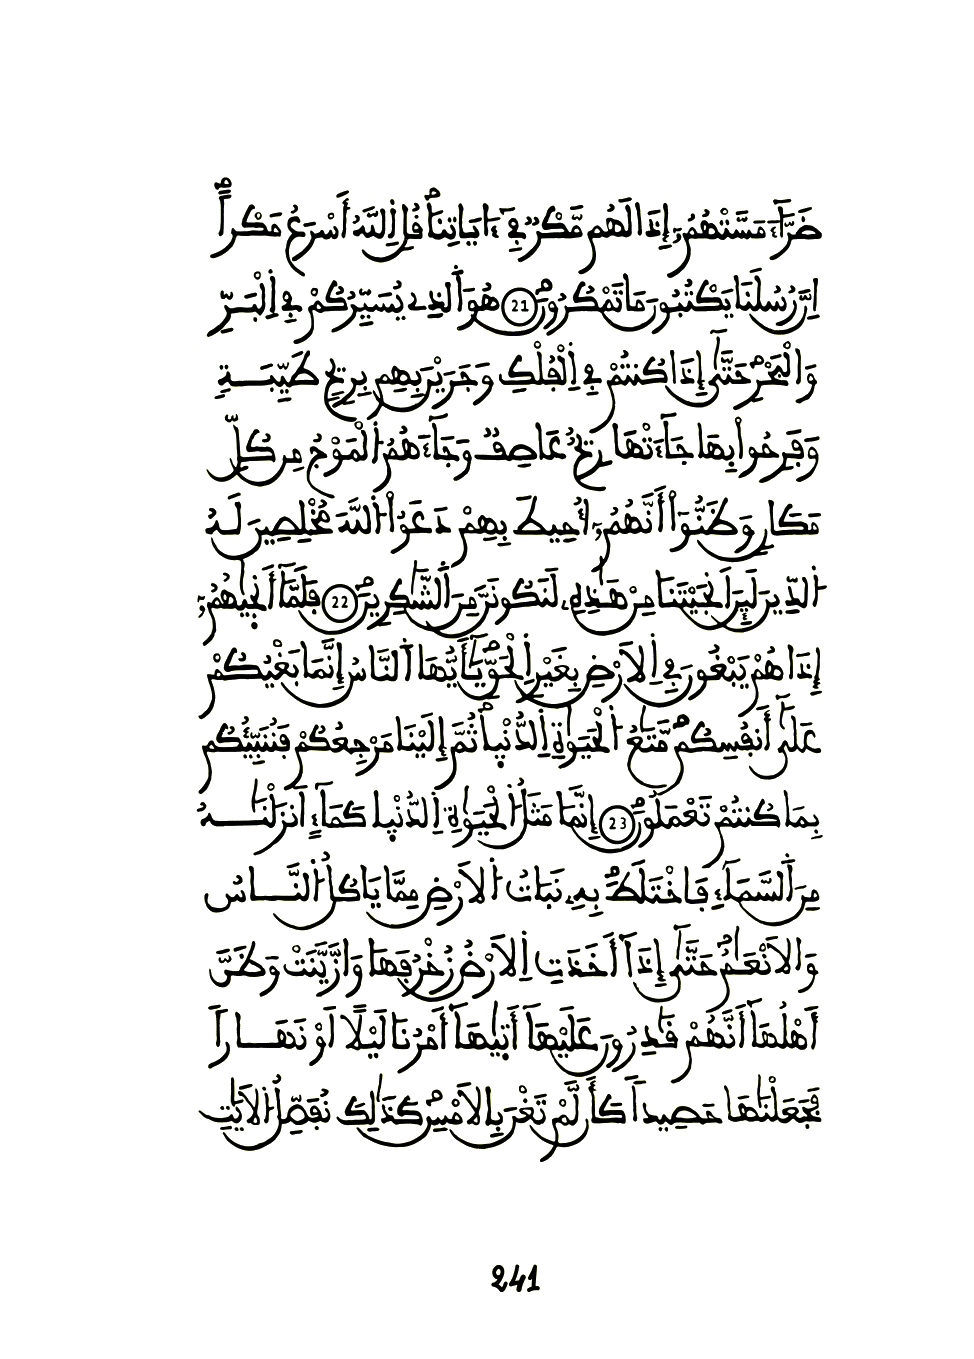 ضَرَّآءَ مَسَّتْهُمُۥٓ إِذَا لَهُم مَّكْرٞ فِےٓ ءَايَاتِنَاۖ قُلِ اِ۬للَّهُ أَسْرَعُ مَكْراًۖ
اِنَّ رُسُلَنَا يَكْتُبُونَ مَا تَمْكُرُونَۖ 21 هُوَ اَ۬لذِے يُسَيِّرُكُمْ فِے اِ۬لْبَرِّ
وَالْبَحْرِۖ حَتَّيٰٓ إِذَا كُنتُمْ فِے اِ۬لْفُلْكِ وَجَرَيْنَ بِهِم بِرِيحٖ طَيِّبَةٖ
وَفَرِحُواْ بِهَا جَآءَتْهَا رِيحٌ عَاصِفٞ وَجَآءَهُمُ اُ۬لْمَوْجُ مِن كُلِّ
مَكَانٖ وَظَنُّوٓاْ أَنَّهُمُۥٓ أُحِيطَ بِهِمْ دَعَوُاْ اُ۬للَّهَ مُخْلِصِينَ لَهُ
اُ۬لدِّينَ لَئِنَ اَنجَيْتَنَا مِنْ هَٰذِهِۦ لَنَكُونَنَّ مِنَ اَ۬لشَّٰكِرِينَۖ 22 فَلَمَّآ أَنج۪يٰهُمُۥٓ
إِذَا هُمْ يَبْغُونَ فِے اِ۬لَارْضِ بِغَيْرِ اِ۬لْحَقِّۖ يَٰٓأَيُّهَا اَ۬لنَّاسُ إِنَّمَا بَغْيُكُمْ
عَلَيٰٓ أَنفُسِكُمۖ مَّتَٰعُ اُ۬لْحَيَوٰةِ اِ۬لدُّنْي۪اۖ ثُمَّ إِلَيْنَا مَرْجِعُكُمْ فَنُنَبِّئُكُم
بِمَا كُنتُمْ تَعْمَلُونَۖ 23 إِنَّمَا مَثَلُ اُ۬لْحَيَوٰةِ اِ۬لدُّنْي۪ا كَمَآءٍ اَنزَلْنَٰهُ
مِنَ اَ۬لسَّمَآءِ فَاخْتَلَطَ بِهِۦ نَبَاتُ اُ۬لَارْضِ مِمَّا يَاكُلُ اُ۬لنَّاسُ
وَالَانْعَٰمُۖ حَتَّيٰٓ إِذَآ أَخَذَتِ اِ۬لَارْضُ زُخْرُفَهَا وَازَّيَّنَتْ وَظَنَّ
أَهْلُهَآ أَنَّهُمْ قَٰدِرُونَ عَلَيْهَآ أَت۪يٰهَآ أَمْرُنَا لَيْلًا أَوْ نَهَاراٗ
فَجَعَلْنَٰهَا حَصِيداٗ كَأَن لَّمْ تَغْنَ بِالَامْسِۖ كَذَٰلِكَ نُفَصِّلُ اُ۬لَايَٰتِ
241